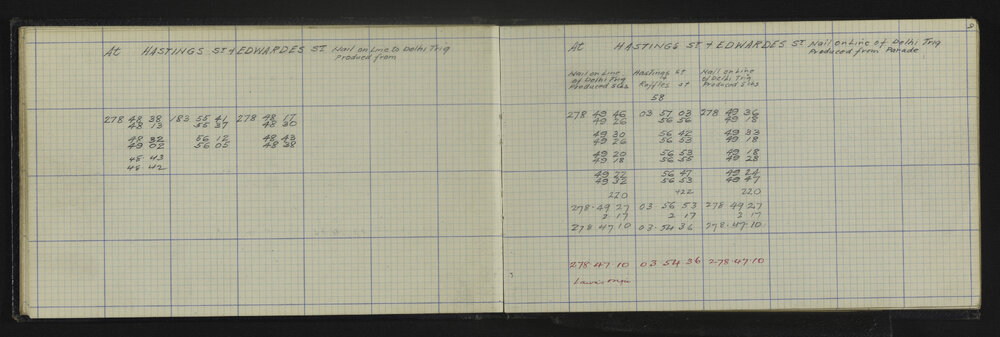 At HASTINGS ST & EDWARDES ST. Nail on Line to Delhi Trig
Produced from
278 48 38 183 55 41 278 48 17
48 13 55 37 48 30
48 32 56 12 48 43
49 02 56 05 48 38
48 43
48 42
9
At HASTINGS ST & EDWARDES ST Nail on Line of Delhi Trig
Produced from Parade
Nail on Line Hastings St Nail on Line
of Delhi Trig to of Delhi Trig
Produced Slbs Roffles st Produced Slbs
58
278 49 46 03 57 03 278 49 36
49 26 56 56 49 18
49 30 56 42 49 33
49 26 56 53 49 18
49 20 56 53 49 18
49 18 56 55 49 28
49 22 56 47 49 24
49 32 56 53 49 47
220 422 220
278.49 27 03 56 53 278 49 27
2 17 2 17 2 17
278 47 10 03.54 36 278.47.10
278.47.10 03.54 36 278.47.10